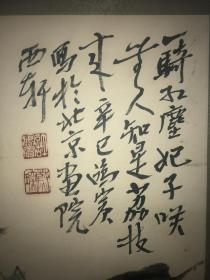 一骑红尘妃子咲
无人知是荔枝
来 辛巳临寒
写於北京画院
西轩